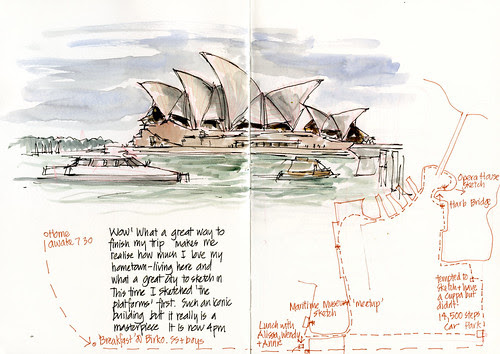 Home
awake 7 30
Wow! What a great way to
finish my trip makes me
realise how much I love my
hometown - living here and
what a great city to sketch in
This time I sketched 'the
platforms' first. Such an iconic
building but it really is a
masterpiece It is now 4pm
Breakfast @ Birko. SS + boys
Lunch with
Alissa, Wendy
+ Anne
Maritime Museum 'meetup'
sketch
Opera House
sketch
Harb Bridge
tempted to
sketch + have
a cuppa but
didn't!
14,500 steps
Car Park